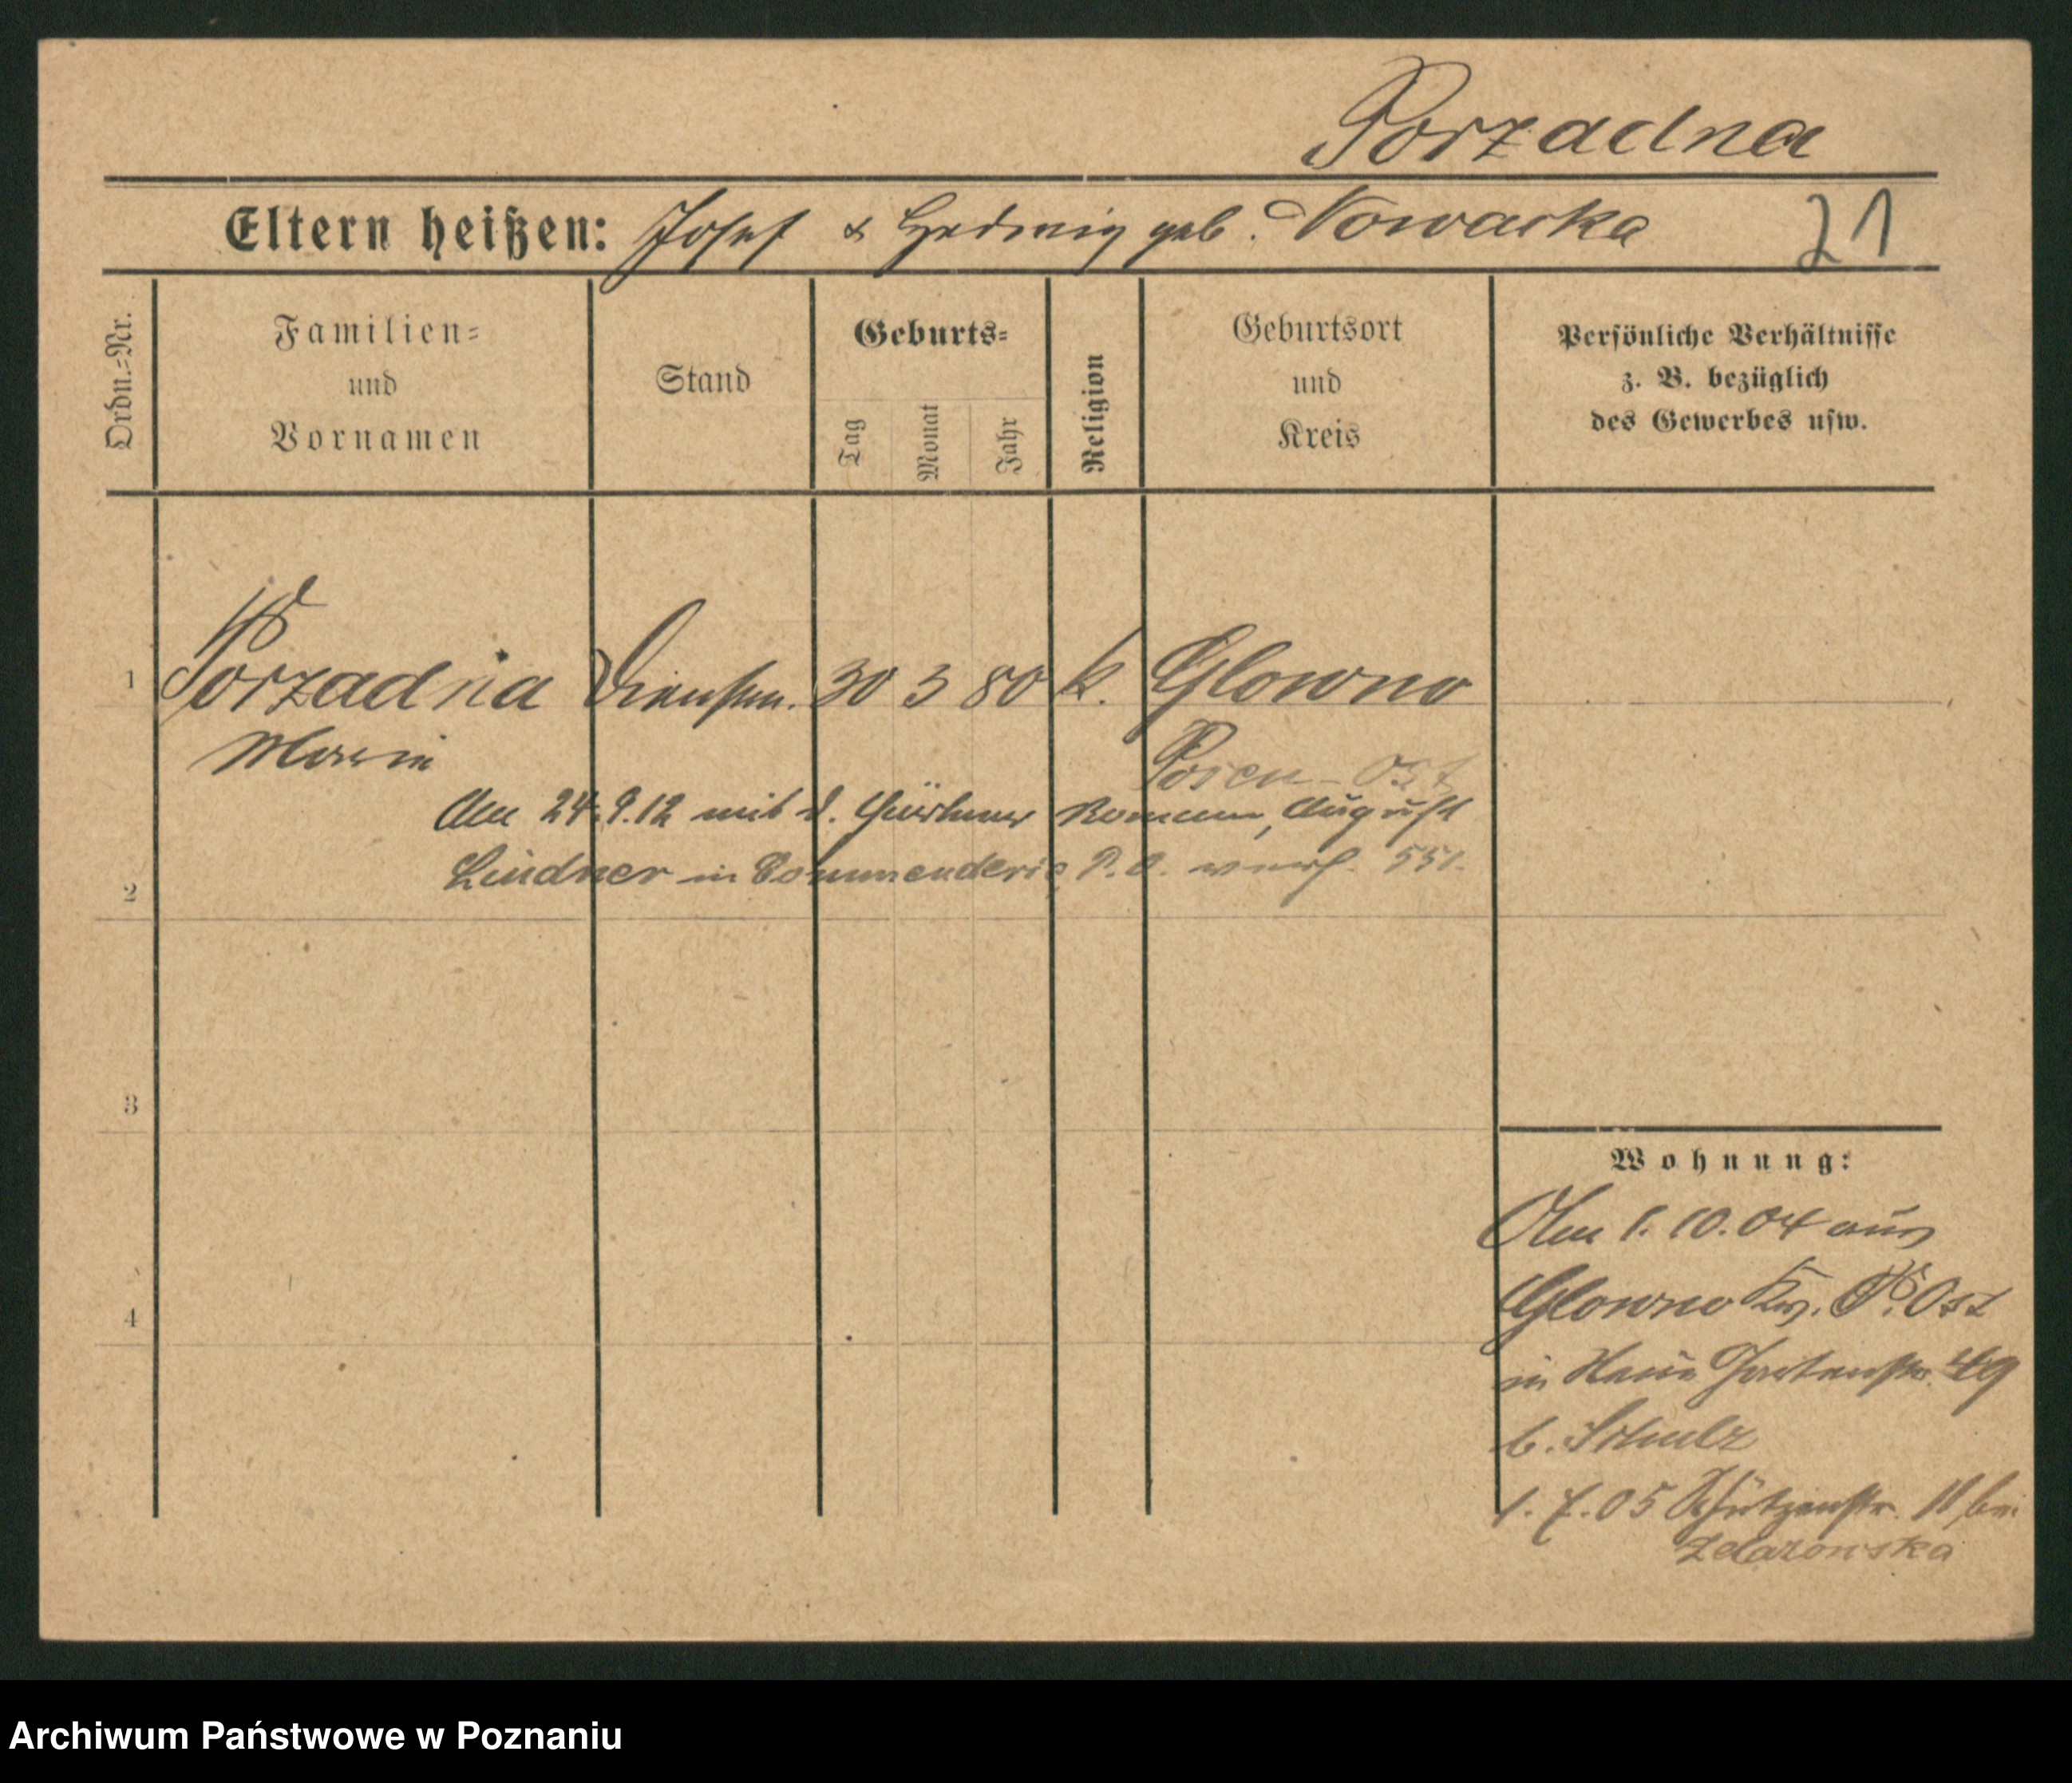 Porzadna
Eltern heißen: Josef & Hedwig geb. Nowacka 21
Ordn.=Nr.
Familien=
und
Vornamen
Stand
Geburts=
Tag
Monat
Jahr
Religion
Geburtsort
und
Kreis
Persönliche Verhältnisse
z. B. bezüglich
des Gewerbes usw.
1 Porzadna 30 3 80 k. Glowno
Marie
Posen-Ost
Am 24.9.12 mit d. Roman, August
2 Lindner in Commenderie P.O. 551.
3
4
Wohnung:
Am 1.10.04 aus
Glowno Krs. P. Ost
in Gartenstr. 49
b. Schulz
1. 7. 05 Schützenstr. 11 bei
Zdarowska
Archiwum Państwowe w Poznaniu